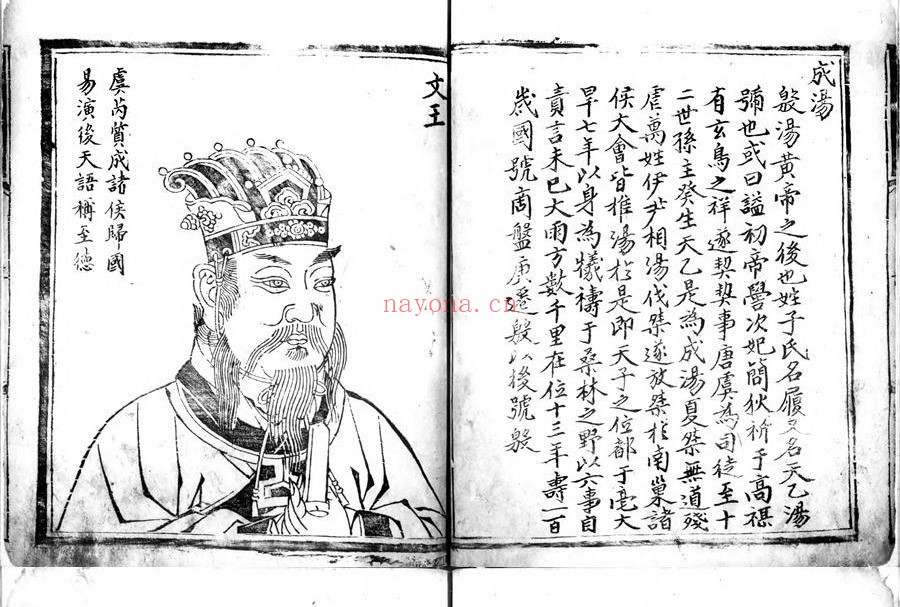 成湯
殷湯黃帝之後也姓子氏名履又名天乙湯
號也或曰謚初帝嚳次妃簡狄祈于高禖
有玄鳥之祥遂契契事唐虞為司徒至十
二世孫主癸生天乙是為成湯夏桀無道殘
虐萬姓伊尹相湯伐桀遂放桀於南巢諸
侯大會皆推湯於是即天子之位都于亳大
旱七年以身為犧禱于桑林之野以六事自
責言未已大雨方數千里在位十三年壽一百
歲國號商盤庚遷殷以後號殷
文王
虞芮質成諸侯歸國
易演後天語稱至德
nayona.cn